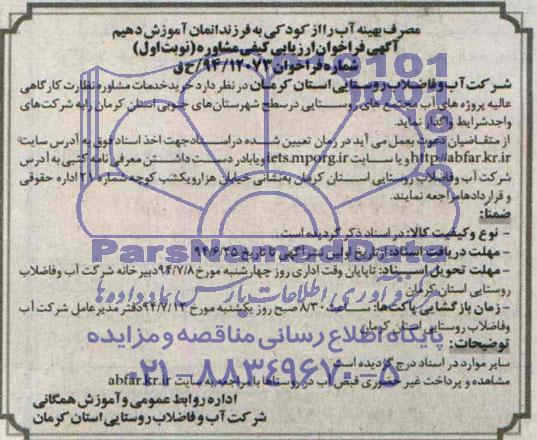 مصرف بهینه آب را از کودکی به فرزندانمان آموزش دهیم
آگهی فراخوان ارزیابی کیفی مشاوره (نوبت اول)
شماره فراخوان ۹۴/۱۲۰۷۳/ح ق
شرکت آب و فاضلاب روستایی استان کرمان در نظر دارد خرید خدمات مشاوره نظارت کارگاهی
عالیه پروژه های آب مجتمع های روستایی در سطح شهرستان‌های جنوبی استان کرمان را به شرکت‌های
واجد شرایط واگذار نماید.
از متقاضیان دعوت بعمل می آید در زمان تعیین شده در اسناد جهت اخذ اسناد فوق به آدرس سایت
http://abfar.kr.ir و یا سایت iets.mporg.ir و یا با در دست داشتن معرفی نامه کتبی به آدرس
شرکت آب و فاضلاب روستایی استان کرمان به‌نشانی خیابان هزار و یکشب کوچه شماره ۲۱ اداره حقوقی
و قراردادها مراجعه نمایند.
ضمنا:
- نوع و کیفیت کالا: در اسناد ذکر گردیده است.
- مهلت دریافت اسناد: از تاریخ اولین نشر آگهی تا تاریخ ۹۴/۶/۲۵
- مهلت تحویل اسناد: تا پایان وقت اداری روز چهارشنبه مورخ ۹۴/۷/۸ دبیرخانه شرکت آب و فاضلاب
روستایی استان کرمان
- زمان بازگشایی پاکت‌ها: ساعت ۸/۳۰ صبح روز یکشنبه مورخ ۹۴/۷/۱۲ دفتر مدیرعامل شرکت آب
وفاضلاب روستایی استان کرمان
توضیحات:
سایر موارد در اسناد درج گردیده است
مشاهده و پرداخت غیر حضوری قبض آب در روستاها با مراجعه به سایت abfar.kr.ir
اداره روابط عمومی و آموزش همگانی
شرکت آب و فاضلاب روستایی استان کرمان
ParsNamadData
فرآوری اطلاعات پارس نماد داده ها
پایگاه اطلاع رسانی مناقصه و مزایده
۰۲۱-۸۸۳۴۹۶۷۰-۵